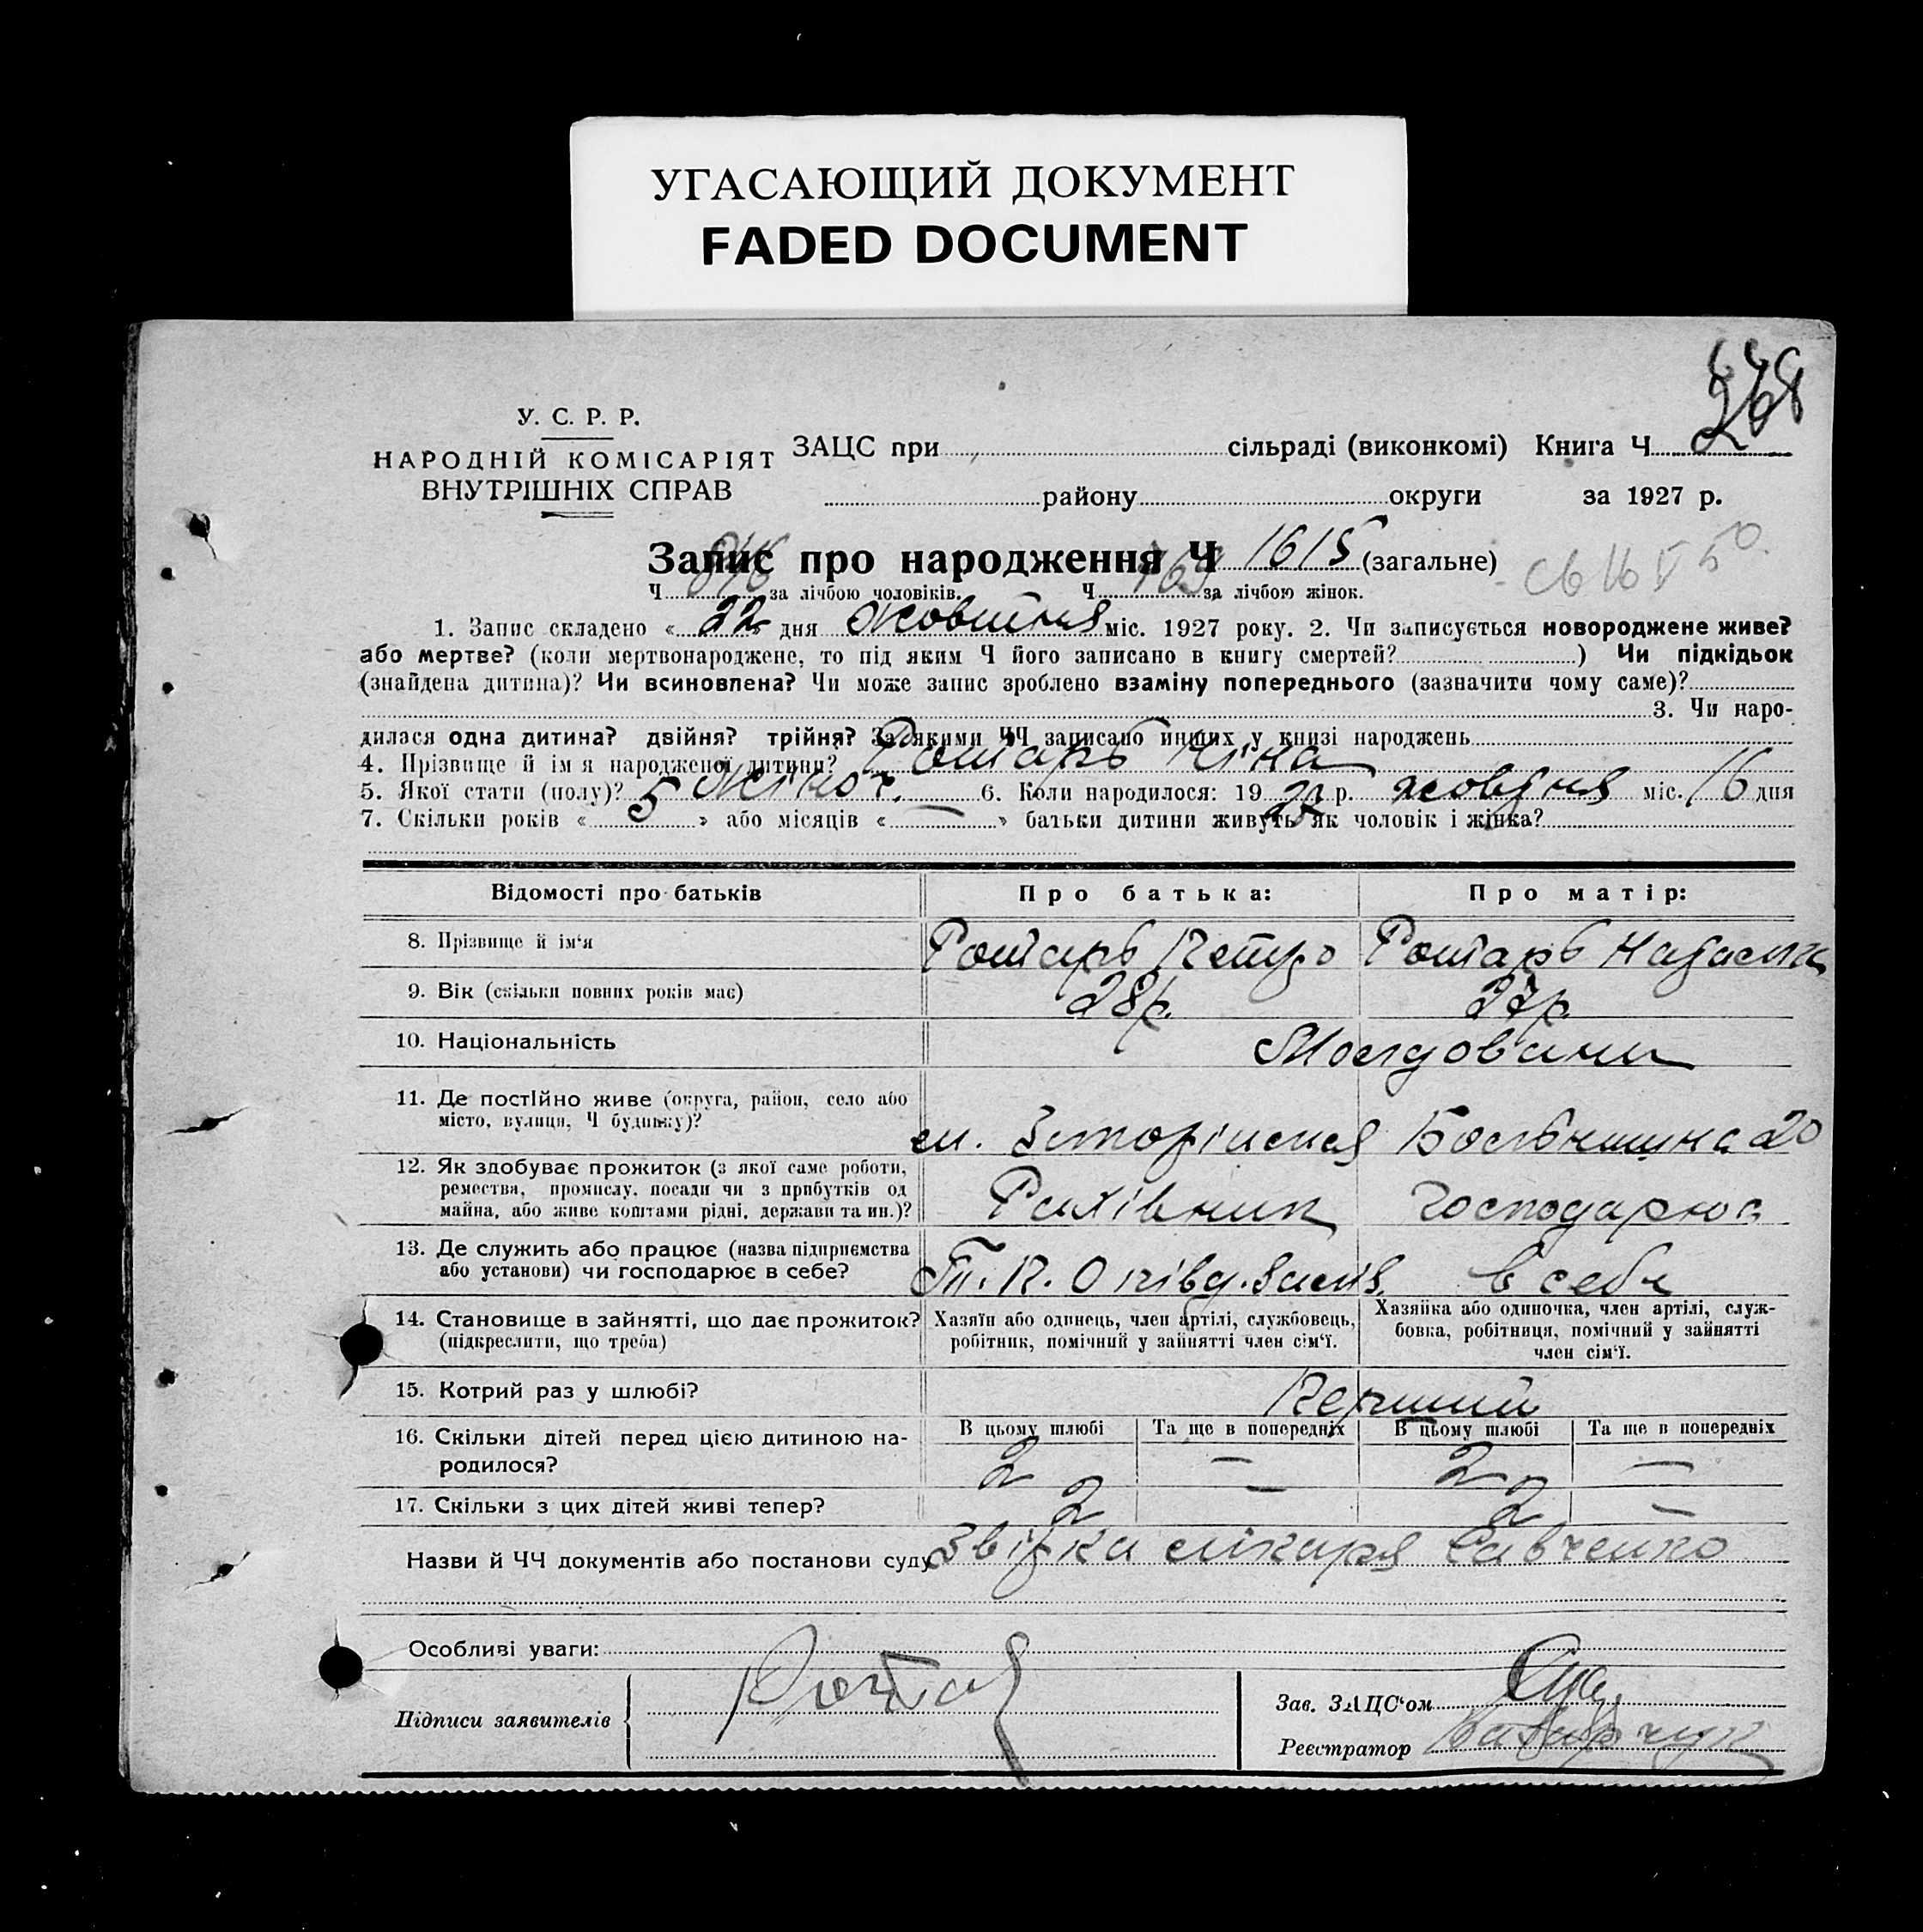 УГАСАЮЩИЙ ДОКУМЕНТ
FADED DOCUMENT
268
У. С. Р. Р.
НАРОДНІЙ КОМІСАРІЯТ
ВНУТРІШНІХ СПРАВ
ЗАЦС при сільраді (виконкомі) Книга Ч
району округи за 1927 р.
Запис про народження Ч 1615 (загальне)
Ч 846 за лічбою чоловіків. Ч 769 за лічбою жінок.
1. Запис складено « 22 » дня жовтня міс. 1927 року. 2. Чи записується новороджене живе?
або мертве? (коли мертвонароджене, то під яким Ч його записано в книгу смертей? ) Чи підкідьок
(знайдена дитина)? Чи всиновлена? Чи може запис зроблено взаміну попереднього (зазначити чому саме)?
3. Чи наро-
дилася одна дитина? двійня? трійня? За якими ЧЧ записано инших у книзі народжень
4. Прізвище й ім я народженої дитини? Ротарь Ніна
5. Якої стати (полу)? жіноч. 6. Коли народилося: 1927 р. жовтня міс. 16 дня
7. Скільки років « 5 » або місяців « — » батьки дитини живуть як чоловік і жінка?
Відомості про батьків Про батька: Про матір:
8. Прізвище й ім‘я Ротарь Петро Ротарь Наталка
9. Вік (скільки повних років має) 28 р. 27 р.
10. Національність Молдовани
11. Де постійно живе (округа, район, село або
місто, вулиця, Ч будинку)?
20
12. Як здобуває прожиток (з якої саме роботи,
ремества, промислу, посади чи з прибутків од
майна, або живе коштами рідні, держави та ин.)?
Рахівник
13. Де служить або працює (назва підприємства
або установи) чи господарює в себе?
в себе
14. Становище в зайнятті, що дає прожиток?
(підкреслити, що треба)
Хазяїн або одинець, член артілі, службовець,
робітник, помічний у зайнятті член сім‘ї.
Хазяйка або одиночка, член артілі, служ-
бовка, робітниця, помічний у зайнятті
член сім‘ї.
15. Котрий раз у шлюбі? Перший
В цьому шлюбі Та ще в попередніх В цьому шлюбі Та ще в попередніх
16. Скільки дітей перед цією дитиною на-
родилося?
2 — 2 —
17. Скільки з цих дітей живі тепер? 2 — 2 —
Назви й ЧЧ документів або постанови суду Звістка лікаря Савченко
Особливі уваги:
Підписи заявителів
Зав. ЗАЦС‘ом
Реєстратор